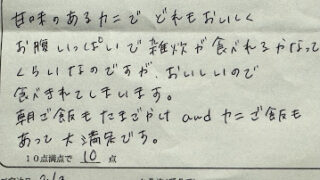 甘味のあるカニで どれもおいしく
お腹いっぱいで雑炊が食べれるかなって
くらいなのですが、おいしいので
食べきれてしまいます。
朝ご飯もたまごかけ and カニご飯も
あって大満足です。
10点満点で 10 点